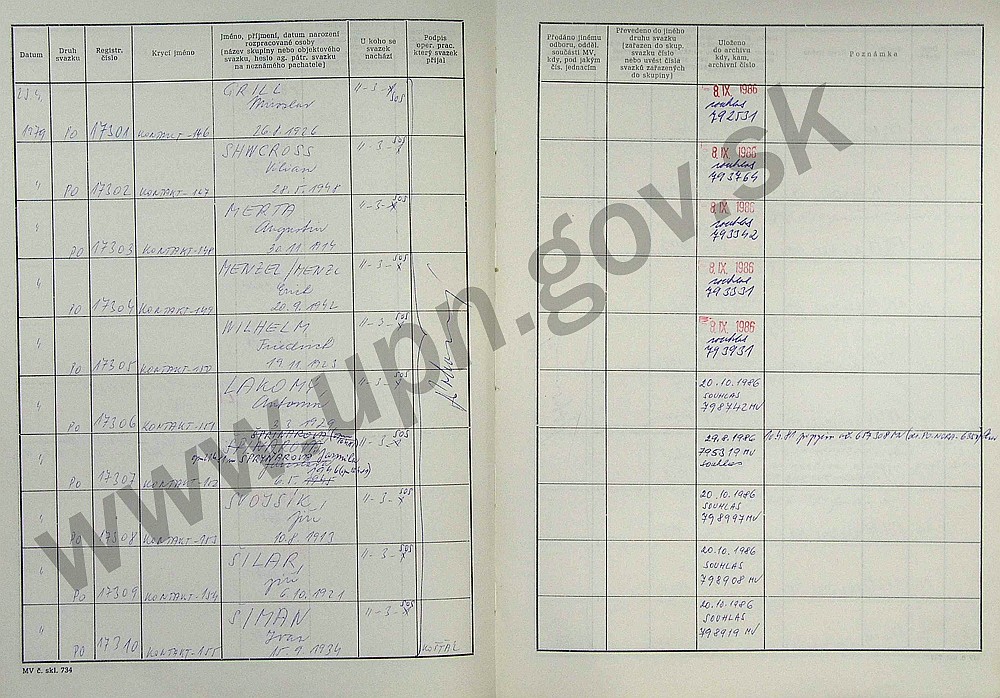 Datum
Druh svazku
Registr. číslo
Krycí jméno
Jméno, příjmení, datum narození
rozpracované osoby
(název skupiny nebo objektového
svazku, heslo ag. pátr. svazku
na neznámého pachatele)
U koho se
svazek
nachází
Podpis
oper. prac.
který svazek
přijal
Předáno jinému
odboru, odděl.
součásti MV,
kdy, pod jakým
čís. jednacím
Převedeno do jiného
druhu svazku
(zařazen do skup.
svazku číslo
nebo uvést čísla
svazků zařazených
do skupiny)
Uloženo
do archivu
kdy, kam,
archivní číslo
Poznámka
1979 PO 17301 KONTAKT-146 GRILL Miroslav 26.1.1926 II-3-X SOS
8. IX. 1986
souhlas
792531
" PO 17302 KONTAKT-147 SHWCROSS 28.5.1948 II-3-X SOS
8. IX. 1986
souhlas
793764
" PO 17303 KONTAKT-148 MERTA Augustin 30.11.1914 II-3-X SOS
8. IX. 1986
souhlas
793342
" PO 17304 KONTAKT-149 MENZEL/MENZL 20.9.1942 II-3-X SOS
8. IX. 1986
souhlas
793331
" PO 17305 KONTAKT-150 WILHELM Friedrich 19.11.1923 II-3-X SOS
8. IX. 1986
souhlas
793931
" PO 17306 KONTAKT-151 LAKOMÝ Antonín 3.3.1929 II-3-X SOS
20.10.1986
SOUHLAS
798742 MV
" PO 17307 KONTAKT-152 Jarmila 6.5. II-3-X SOS
29.8.1986
795319 MV
souhlas
" PO 17308 KONTAKT-153 SVOJSÍK, Jiří 10.8.1913 II-3-X SOS
20.10.1986
SOUHLAS
798997 MV
" PO 17309 KONTAKT-154 ŠILAR, Jiří 6.10.1921 II-3-X SOS
20.10.1986
SOUHLAS
798908 MV
" PO 17310 KONTAKT-155 SIMAN Ivan 15.9.1934 II-3-X SOS
20.10.1986
SOUHLAS
798919 MV
MV č. skl. 734
www.upn.gov.sk